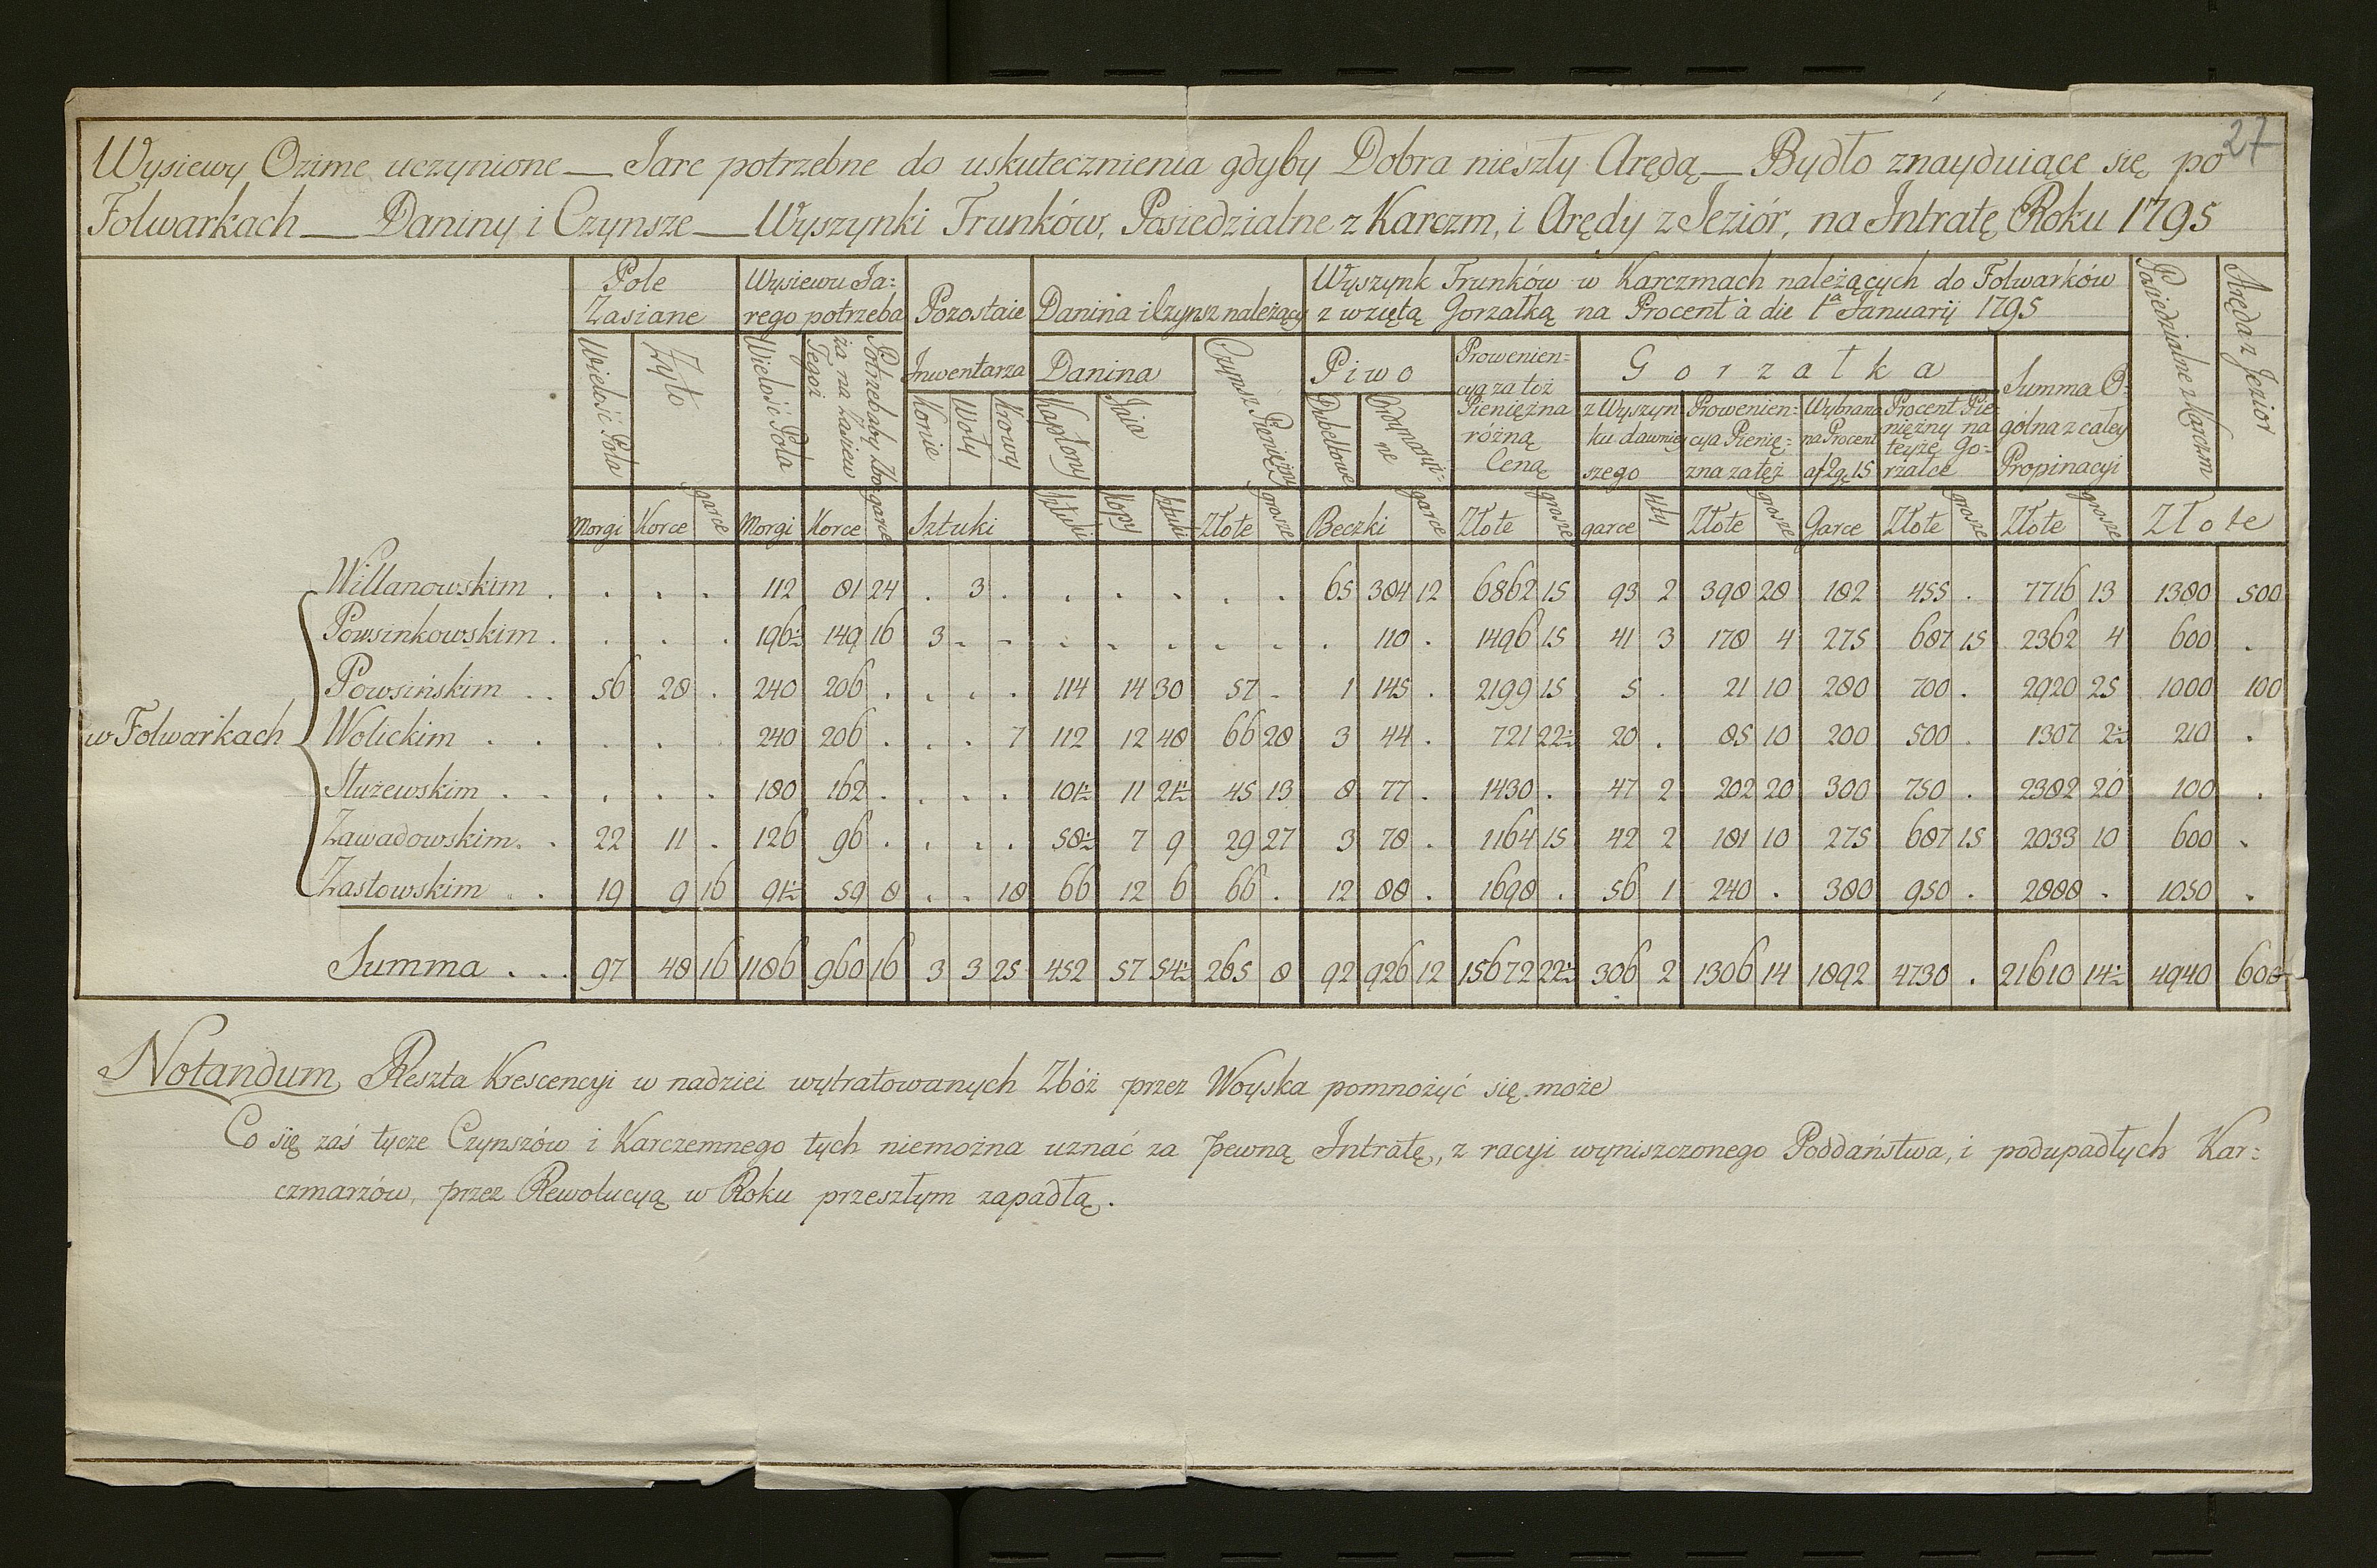 27
Wysiewy Ozime uczynione — Jare potrzebne do uskutecznienia gdyby Dobra nieszły Arędą — Bydło znayduiące się po
Folwarkach — Daniny i Czynsze — Wyszynki Trunków, Posiedzialne z Karczm, i Arędy z Jeziór, na Intratę Roku 1795
Pole Zasiane
Wysiewu Ja:
rego potrzeba
Pozostaie
Danina i Czynsz należący
Wyszynk Trunków w Karczmach należących do Folwarków
z wziętą Gorzałką na Procent à die 1a Januarij 1795
Posiedzialne z Karczm
Aręda z Jezior
Wielość Pola
Zyto
Wielość Pola
Potrzebaby Zbo
ża na Zasiew
Tegoż
Inwentarza
Konie
Woły
Krowy
Danina
Kapłony
Jaia
Czynsz Pieniężny
Piwo
Dubeltowe
Ordynaryi=
ne
Prowenien=
cya za toż
Pieniężna
różną
Ceną
Gorzałka
z Wyszyn
ku dawniey
szego
Prowenien=
cya Pienię=
zna za tęż
Wybrana
na Procent
af 2 g. 15
Procent Pie
niężny na
teyże Go=
rzałce
Summa O=
gólna z całey
Propinacyi
Morgi Korce garce Morgi Korce garce Sztuki Sztuki Kopy sztuki Złote grosze Beczki garce Złote grosze garce kty Złote grosze Garce Złote grosze Złote grosze Złote
w Folwarkach
Willanowskim . . . . 112 81 24 . 3 . . . . . . 65 384 12 6862 15 93 2 398 28 182 455 . 7716 13 1380 500
Powsinkowskim . . . . 196½ 149 16 3 . . . . . . . . 110 . 1496 15 41 3 178 4 275 687 15 2362 4 600 .
Powsińskim . . 56 28 . 240 206 . . . . 114 14 30 57 . 1 145 . 2199 15 5 . 21 10 280 700 . 2920 25 1000 100
Wolickim . . . . 240 206 . . . 7 112 12 48 66 28 3 44 . 721 22½ 20 . 85 10 200 500 . 1307 2½ 210 .
Służewskim . . . . . 180 162 . . . . 101½ 11 21½ 45 13 8 77 . 1430 . 47 2 202 20 300 750 . 2382 20 100 .
Zawadowskim . . 22 11 . 126 96 . . . . 58½ 7 9 29 27 3 78 . 1164 15 42 2 181 10 275 687 15 2033 10 600 .
Zastowskim . . 19 9 16 91½ 59 8 . . 18 66 12 6 66 . 12 88 . 1698 . 56 1 240 . 380 950 . 2888 . 1050 .
Summa . . . 97 48 16 1186 960 16 3 3 25 452 57 54½ 265 8 92 926 12 15672 22½ 306 2 1306 14 1892 4730 . 21610 14½ 4940 600
Notandum, Reszta Krescencyi w nadziei wytratowanych Zbóż przez Woyska pomnożyć się może
Co się zaś tycze Czynszów i Karczemnego tych niemożna uznać za pewną Intratę, z racyi wyniszczonego Poddaństwa, i podupadłych Kar=
czmarzów, przez Rewolucyą w Roku przeszłym zapadłą.